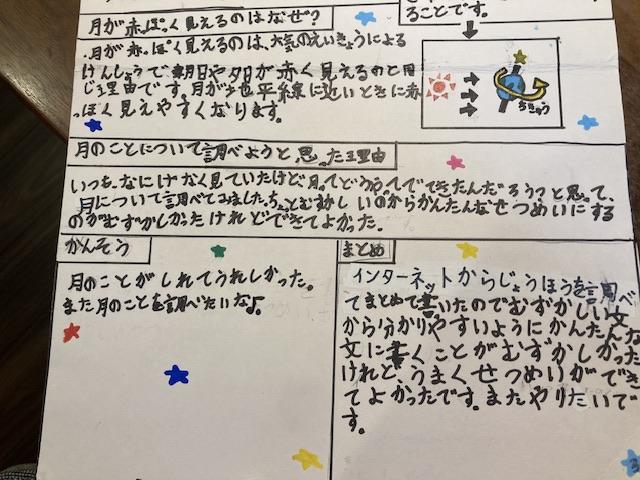 ることです。
月が赤っぽく見えるのはなぜ?
・月が赤っぽく見えるのは、大気のえいきょうによる
けんしょうで朝日や夕日が赤く見えるのと同
じ理由です。月が地平線に近いときに赤
っぽく見えやすくなります。
ちきゅう
月のことについて調べようと思った理由
いつもなにげなく見ていたけど月ってどうやってでてきたんだろうっと思って、
月について調べてみました。ちょっとむずかしいのからかんたんなせつめいにする
のがむずかしかったけれどできてよかった。
かんそう
月のことがしれてうれしかった。
また月のことを調べたいな♪。
まとめ
インターネットからじょうほうを調べ
てまとめて書いたのでむずかしい文
から分かりやすいようにかんたんな
文に書くことがむずかしかった
けれど、うまくせつめいができ
てよかったです。またやりたいで
す。